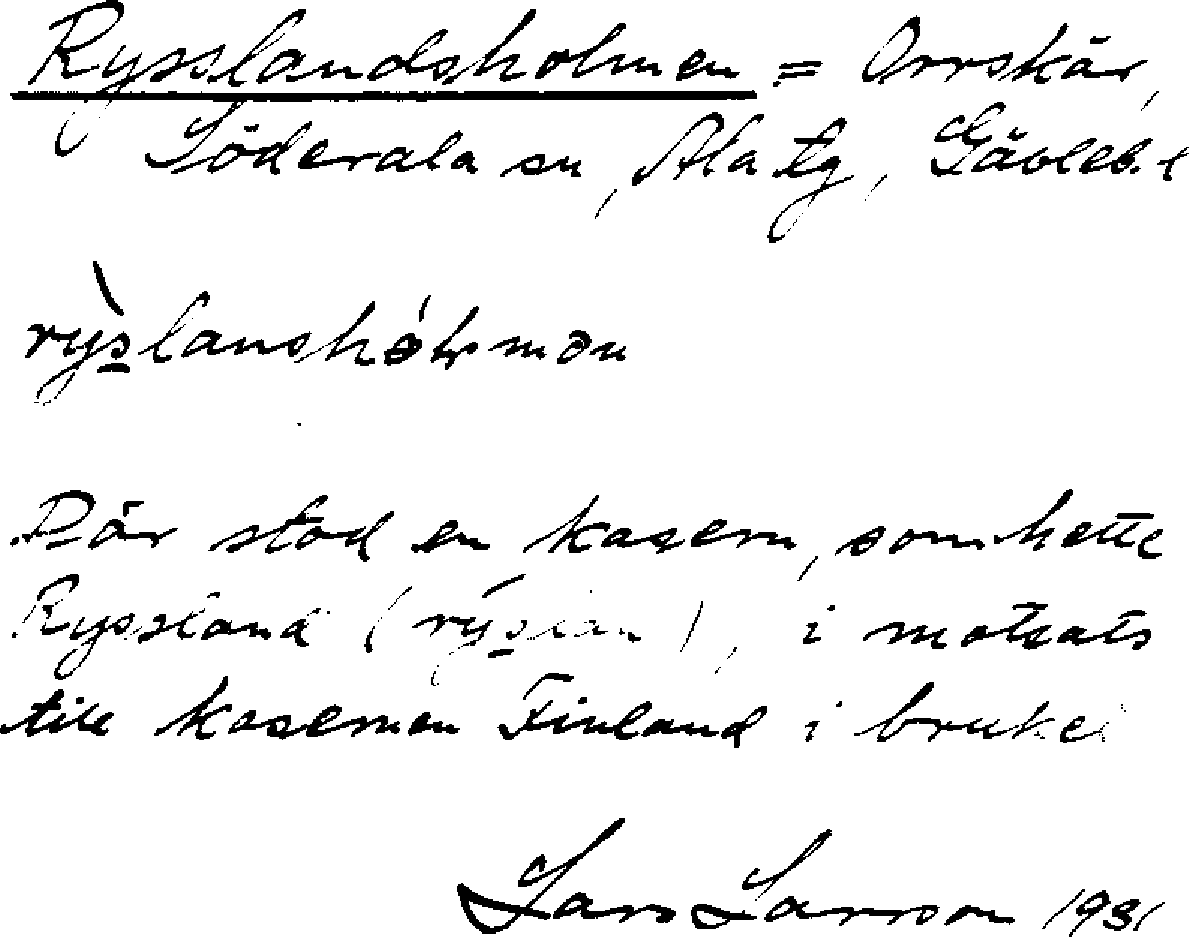 Rysslandsholmen = Orrskär,
Söderala sn, Ala tg, Gävleb. l
Där stod en kasern, som hette
Ryssland (rýslan), i motsats
till kasernen Finland i bruket
Lars Larsson 1931